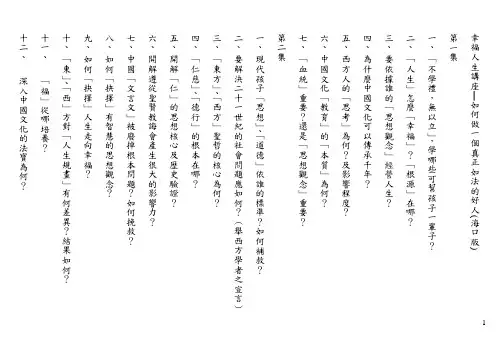 幸福人生講座—如何做一個真正如法的好人(海口版)
第一集
一、「不學禮,無以立」,學哪些可幫孩子一輩子?
二、「人生」怎麼「幸福」?「根源」在哪?
三、要依據誰的「思想觀念」經營人生?
四、為什麼中國文化可以傳承千年?
五、西方人的「思考」為何?及影響程度?
六、中國文化「教育」的「本質」為何?
七、「血統」重要?還是「思想觀念」重要?
第二集
一、現代孩子「思想」、「道德」依誰的標準?如何補救?
二、要解決二十一世紀的社會問題應如何?(舉西方學者之宣言)
三、「東方」、「西方」聖哲的核心為何?
四、「仁慈」、「德行」的根本在哪?
五、開解「仁」的思想核心及歷史驗證?
六、開解遵從聖賢教誨會產生很大的影響力?
七、中國「文言文」被廢掉根本問題?如何挽救?
八、如何「抉擇」有智慧的思想觀念?
九、如何「抉擇」人生走向幸福?
十、「東」、「西」方對「人生規畫」有何差異?結果如何?
十一、「福」從哪培養?
十二、深入中國文化的法寶為何?
1